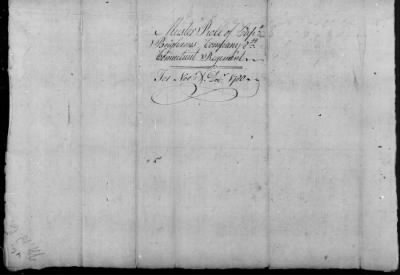 Muster Roll of Capt.
Company 5th
Connecticut Regiment
For Novr. & Decr. 1780